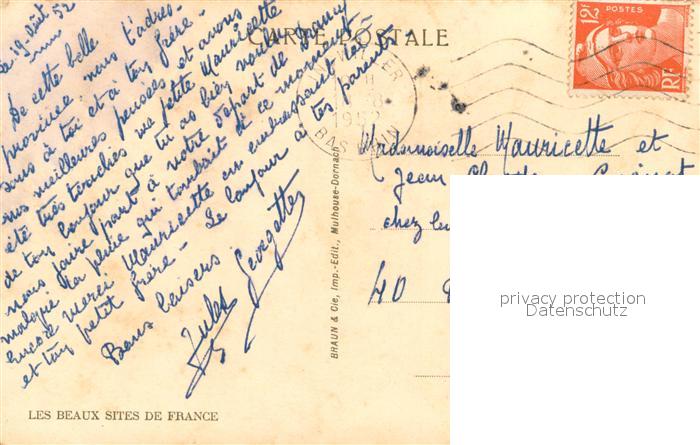 Le 19 août 52
De cette belle
province, nous t'adres-
sons à toi et à ton frère
nos meilleures pensées et avons
été très touchés ma petite Mauricette
de ton bonjour que tu as bien voulu
nous faire part à notre départ de Drancy
malgré la pluie qui tombait à ce moment-
Encore merci Mauricette en embrassant toi
et ton petit frère - Le bonjour à tes parents -
Bons baisers.
Jules Georgette
LES BEAUX SITES DE FRANCE
CARTE POSTALE
BRAUN & Cie, Imp.-Edit., Mulhouse-Dornach
1952
BAS RHIN
12F
POSTES
RF
Mademoiselle Mauricette et
Jean
chez
40
privacy protection
Datenschutz